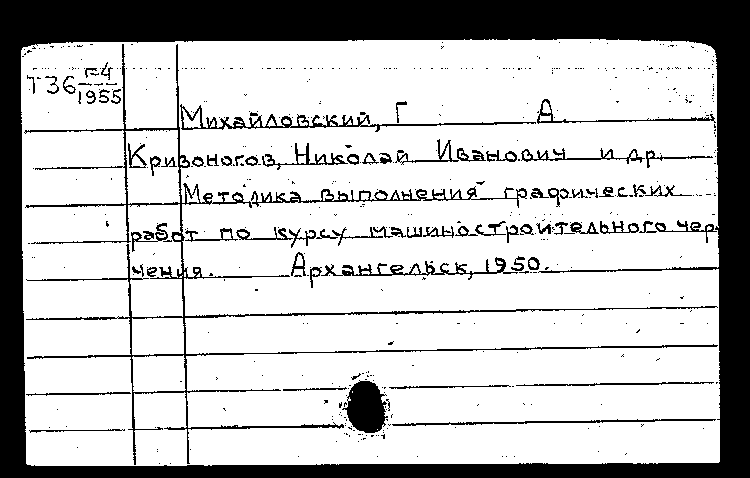 Т36 Г-4
1955
Михайловский, Г А.
Кривоногов, Николай Иванович и др.
Методика выполнения графических
работ по курсу машиностроительного чер
чения. Архангельск, 1950.